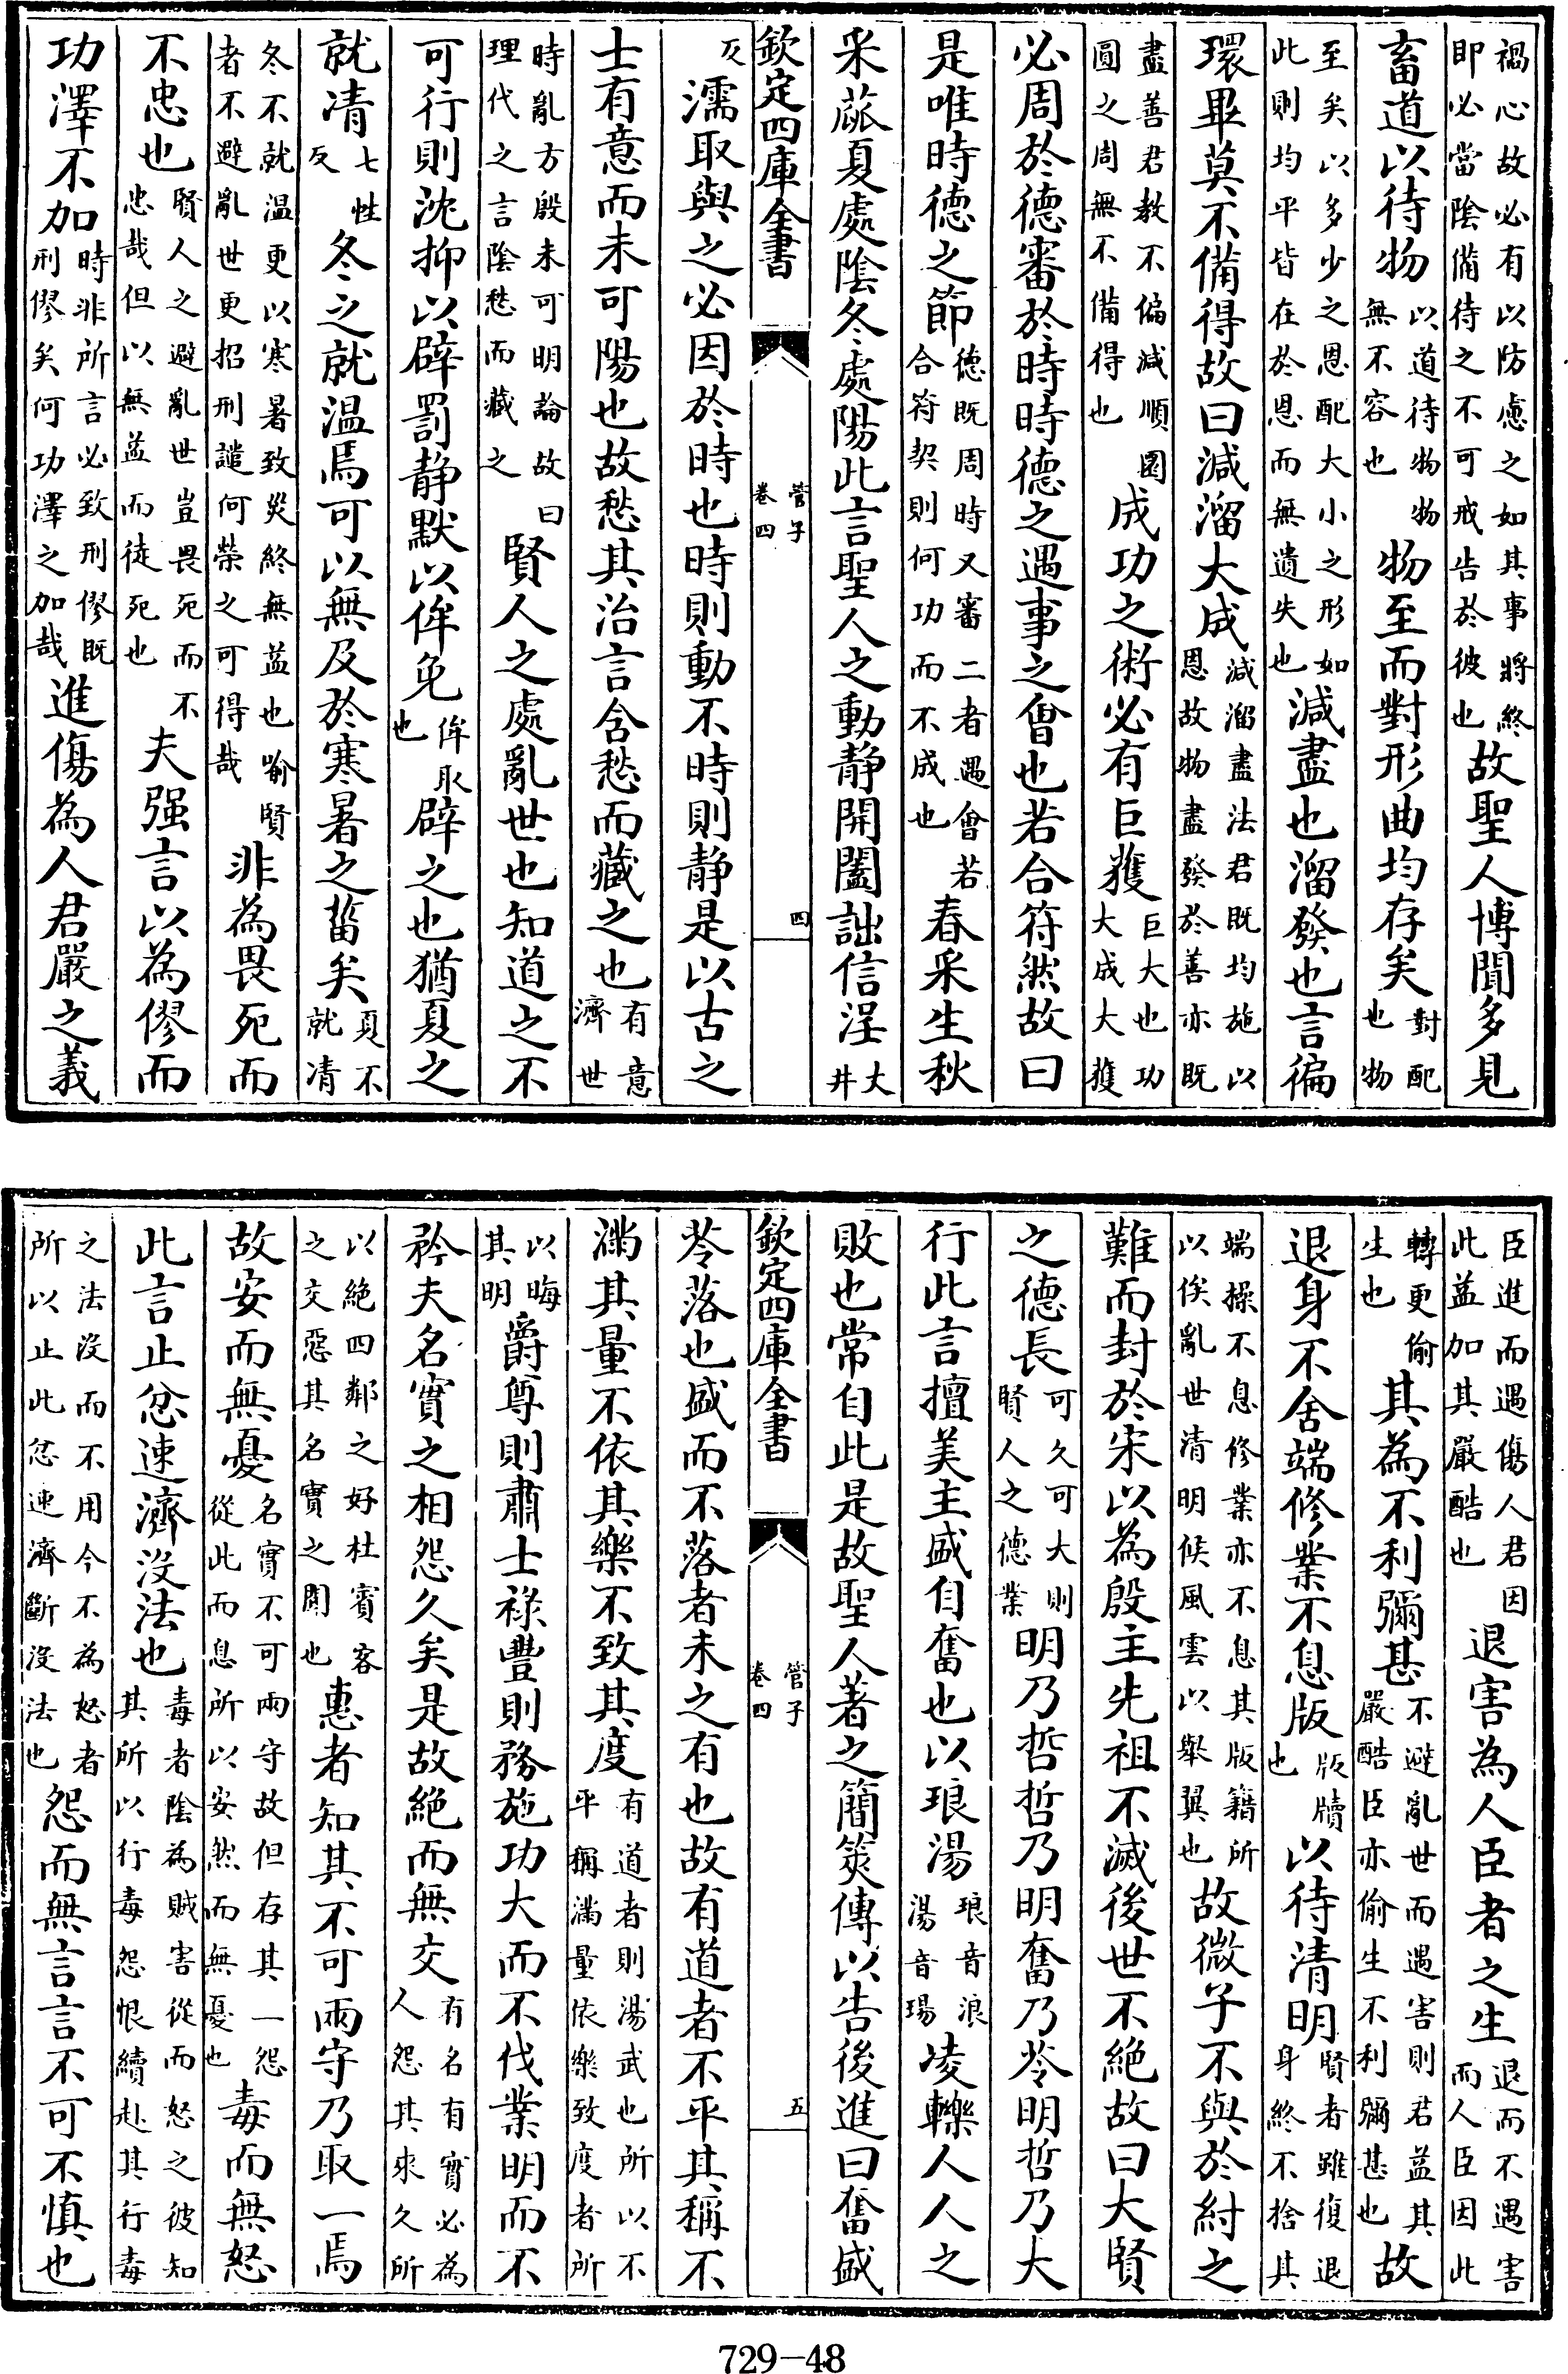 禍心故必有以防慮之如其事將終即必當陰備待之不可戒告於彼也故聖人博聞多見
畜道以待物以道待物物無不容也物至而對形曲均存矣對配也物
至矣以多少之恩配大小之形如此則均平皆在於恩而無遺失也減盡也溜發也言徧
環畢莫不備得故曰減溜大成減溜盡法君既均施以恩故物盡發於善亦既
盡善君教不偏減順圜圓之周無不備得也成功之術必有巨獲巨大也功大成大獲
必周於德審於時時德之遇事之會也若合符然故曰
是唯時德之節德既周時又審二者遇會若合符契則何功而不成也春采生秋
采蓏夏處陰冬處陽此言聖人之動静開闔詘信浧丈井
反濡取與之必因於時也時則動不時則静是以古之
士有意而未可陽也故愁其治言含愁而藏之也有意濟世
時亂方殷未可明論故曰理代之言陰愁而藏之賢人之處亂世也知道之不
可行則沈抑以辟罰静默以侔免侔取也辟之也猶夏之
就凊七性反冬之就温焉可以無及於寒暑之菑矣夏不就凊
冬不就温更以寒暑致災終無益也喻賢者不避亂世更招刑譴何榮之可得哉非為畏死而
不忠也賢人之避亂世豈畏死而不忠哉但以無益而徒死也夫强言以為僇而
功澤不加時非所言必致刑僇既刑僇矣何功澤之加哉進傷為人君嚴之義
欽定四庫全書
管子
卷四
四
臣進而遇傷人君因此益加其嚴酷也退害為人臣者之生退而不遇害而人臣因此
轉更偷生也其為不利彌甚不避亂世而遇害則君益其嚴酷臣亦偷生不利彌甚也故
退身不舍端修業不息版版牘也以待清明賢者雖復退身終不捨其
端操不息修業亦不息其版籍所以俟亂世清明候風雲以舉翼也故微子不與於紂之
難而封於宋以為殷主先祖不滅後世不絶故曰大賢
之德長可久可大則賢人之德業明乃哲哲乃明奮乃苓明哲乃大
行此言擅美主盛自奮也以琅湯琅音浪湯音瑒凌轢人人之
敗也常自此是故聖人著之簡筴傳以告後進曰奮盛
苓落也盛而不落者未之有也故有道者不平其稱不
滿其量不依其樂不致其度有道者則湯武也所以不平稱滿量依樂致度者所
以晦其明爵尊則肅士祿豐則務施功大而不伐業明而不
矜夫名實之相怨久矣是故絶而無交有名有實必為人怨其來久所
以絶四鄰之好杜賓客之交惡其名實之聞也惠者知其不可兩守乃取一焉
故安而無憂名實不可兩守故但存其一怨從此而息所以安然而無憂也毒而無怒
此言止忿速濟沒法也毒者陰為賊害從而怒之彼知其所以行毒怨恨續赴其行毒
之法沒而不用今不為怒者所以止此忿速濟斷沒法也怨而無言言不可不慎也
欽定四庫全書
管子
卷四
五
729-48